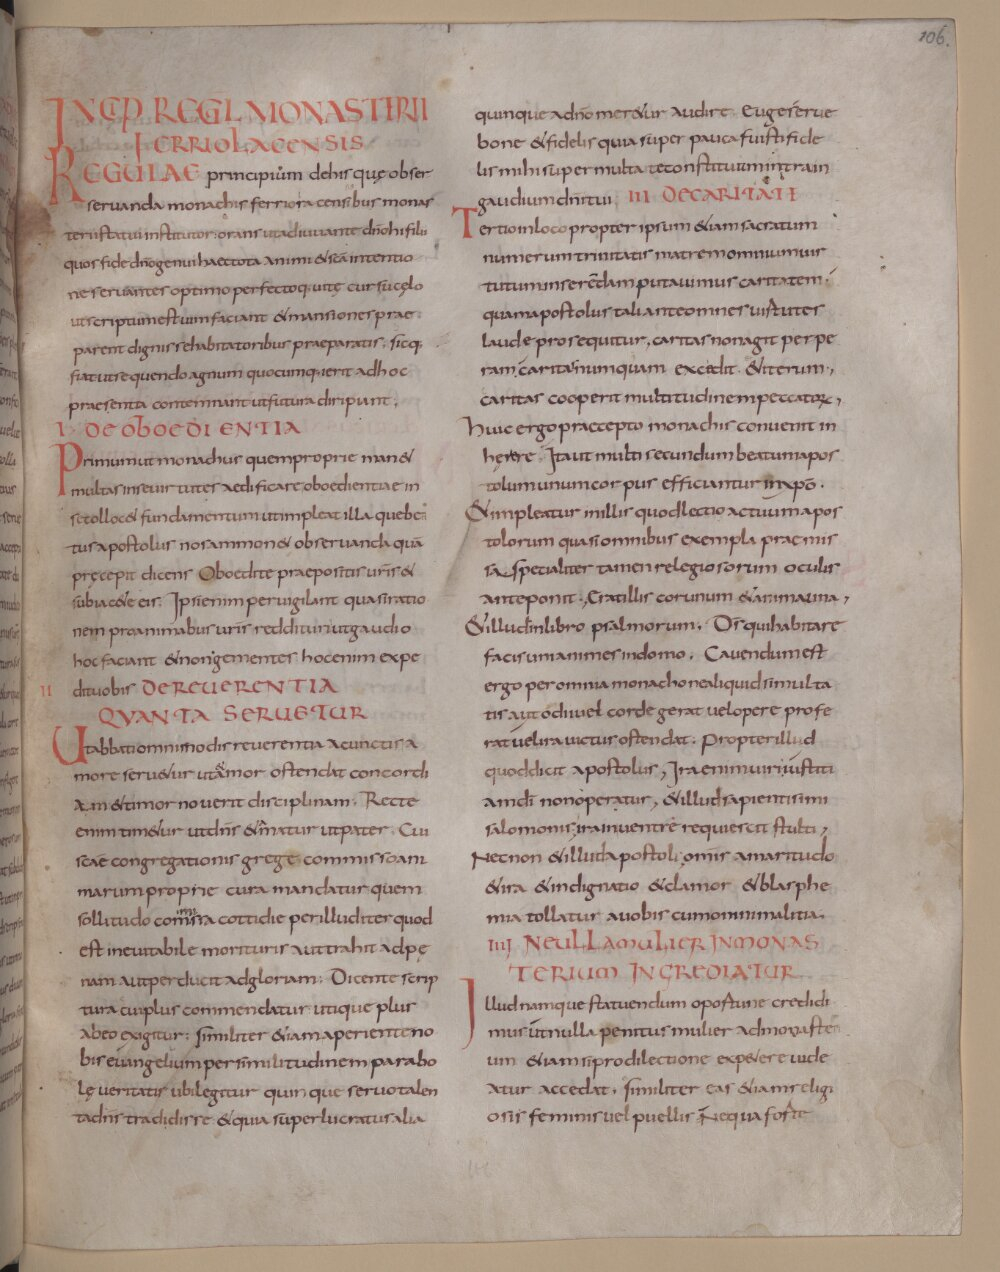 106.
INCP REGL MONASTIRII
FERRIOLACENSIS
REGULAE principium dehis quę obser
servanda monachis ferriora censibus monas
terii statui institutor. orans ut adiuvante dno hi filii
quos fide dno genui haec tota animi & scā intentio
ne servantes optimo perfectoq; vitę cursu cęlo
ut scriptum est viam faciant & mansiones prae
parent dignis se habitatoribus praeparatis. sicq;
fiat ut sequendo agnum quocumq; ierit ad hoc
praesentia contemnant ut futura diripiant.
I DE OBOEDIENTIA
Primum ut monachus quem proprie man&
multas inse virtutes aedificare oboedientiae in
se tolloc& fundamentum ut impleat illa quebe
tus apostolus nos ammon& observanda quā
pręcepit dicens Oboedite praepositis vr̄is &
subiac&e eis. Ipsi enim pervigilant quasi ratio
nem pro animabus vr̄is reddituri ut gaudio
hoc faciant & non gementes hoc enim expe
dit vobis DE REVERENTIA
II
QUANTA SERVETUR
Ut abbati omnimodis reverentia a cunctis a
more serv&ur ut amor ostendat concordi
am & timor noverit disciplinam. Recte
enim tim&ur ut dn̄s & amatur ut pater. Cui
scae congregationis grege commisso ani
marum proprie cura mandatur quem
sollitudo commissa cottidie perilluditer quod
est inevitabile morituris aut trahit ad pę
nam aut perducit ad gloriam. Dicente scrip
tura cui plus commendatur. utique plus
ab eo exigitur. similiter & iam aperiente no
bis evangelium per similitudinem parabo
lę veritatis ubi legitur quinque servo talen
ta dn̄s tradidisse & quia super lucratus alia
quinque a dn̄o mer&ur audire. Euge serve
bone & fidelis quia super pauca fuisti fide
lis mihi super multa te constituim intra in
gaudium dn̄i tui III DE CARITATE
Tertio in loco propter ipsum & iam sacratum
numerum trinitatis matrem omnium vir
tutum inserendam putavimus caritatem.
quam apostolus tali ante omnes virtutes
laude prosequitur, caritas non agit perpe
ram, caritas numquam excedit. & iterum,
caritas cooperit multitudinem peccatorum,
Huic ergo praecepto monachis convenit in
herere. Ita ut multi secundum beatum apos
tolum unum corpus efficiantur in xpō.
& impleatur in illis quod lectio actuum apos
tolorum quasi omnibus exempla praemis
sa. specialiter tamen relegiosorum oculis
anteponit., Erat illis cor unum & anima una,
& illud in libro psalmorum. D̄s qui habitare
facis unianimes in domo. Cavendum est
ergo per omnia monacho ne aliquid simulta
tis aut odii vel corde gerat vel opere profe
rat vel ira victus ostendat. Propter illud
quod dicit apostolus, Ira enim viri iustiti
am dī non operatur, & illud sapientisimi
salomonis, ira in ventre requiescit stulti,
Necnon & illud apostoli. omis amaritudo
& ira & indignatio & clamor & blasphe
mia tollatur a vobis cum omni malitia.
IIII NE ULLA MULIER IN MONAS
TERIUM INGREDIATUR
Illud namque statuendum opostune credidi
mus ut nulla penitus mulier ad monaste
rium & iam si pro dilectione exp&ere vide
atur accedat. similiter eas & iam religi
osis feminis vel puellis. Ne quia forte